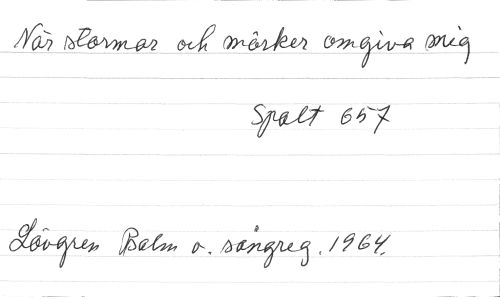 När stormar och mörker omgiva mig
Spalt 657
Lövgren Psalm o. sångreg. 1964.